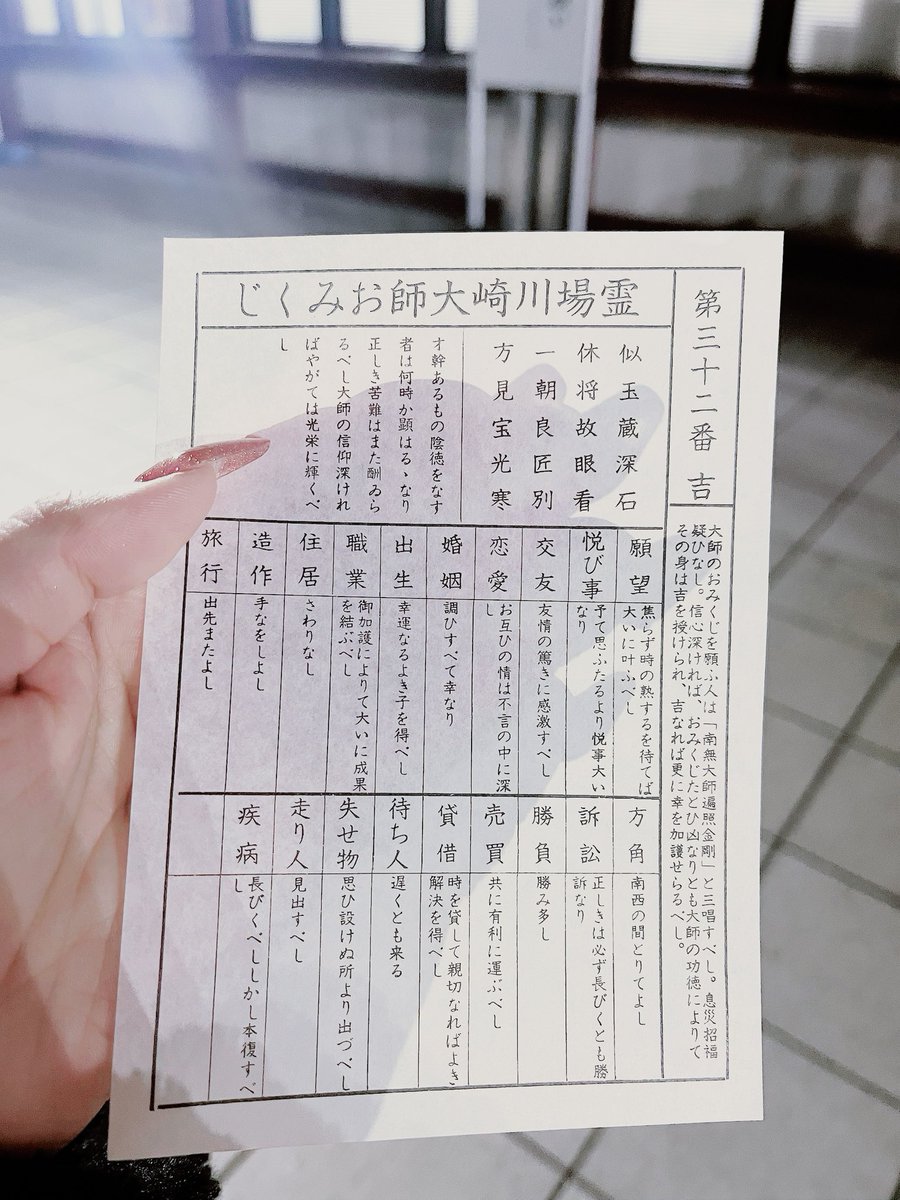 第三十二番 吉
大師のおみくじを願ふ人は「南無大師遍照金剛」と三唱すべし。息災招福
疑ひなし。信心深ければ、おみくじたとひ凶なりとも大師の功徳によりて
その身は吉を授けられ、吉なれば更に幸を加護せらるべし。
霊場川崎大師おみくじ
似玉蔵深石
休将故眼看
一朝良匠別
方見宝光寒
才幹あるもの陰徳をなす
者は何時か顕はるゝなり
正しき苦難はまた酬ゐら
るべし大師の信仰深けれ
ばやがては光栄に輝くべ
し
願望
焦らず時の熟するを待てば
大いに叶ふべし
悦び事
予て思ふたるより悦事大い
なり
交友
友情の篤きに感激すべし
恋愛
お互ひの情は不言の中に深
し
婚姻
調ひすべて幸なり
出生
幸運なるよき子を得べし
職業
御加護によりて大いに成果
を結ぶべし
住居
さわりなし
造作
手なをしよし
旅行
出先またよし
方角
南西の間とりてよし
訴訟
正しきは必ず長びくとも勝
訴なり
勝負
勝み多し
売買
共に有利に運ぶべし
貸借
時を貸して親切なればよき
解決を得べし
待ち人
遅くとも来る
失せ物
思ひ設けぬ所より出づべし
走り人
見出すべし
疾病
長びくべししかし本復すべ
し